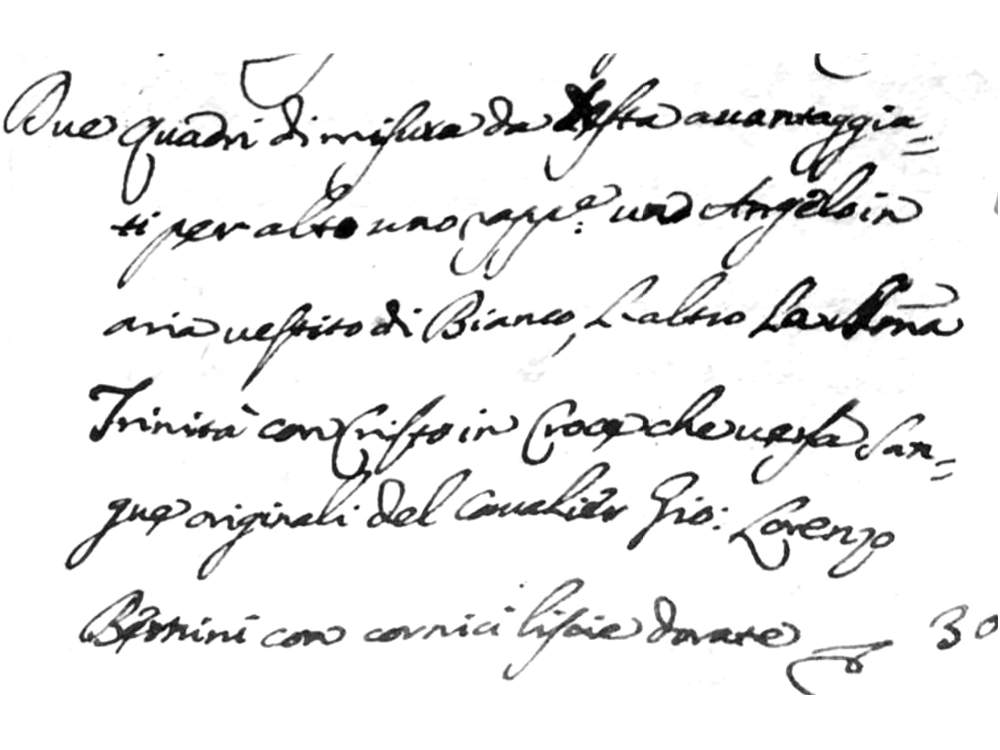 Due quadri di misura da testa auantaggia=
ti per alto uno rapp.e uno Angelo in
aria uestito di Bianco, L'altro La
Trinità con Cristo in Croce che uersa San=
gue originali del Caualier Gio: Lorenzo
Bernini con cornici liscie dorate 30